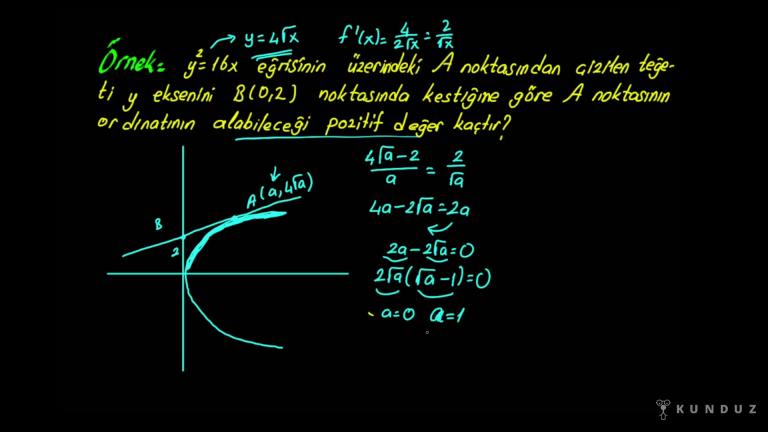 y=4√x   f'(x)=4/2√x=2/√x
Örnek= y²=16x eğrisinin üzerindeki A noktasından çizilen teğe-
ti y eksenini B(0,2) noktasında kestiğine göre A noktasının
ordinatının alabileceği pozitif değer kaçtır?
4√a-2/a = 2/√a
A(a,4√a)
4a-2√a=2a
B
2
2a-2√a=0
2√a(√a-1)=0
a=0 a=1
KUNDUZ